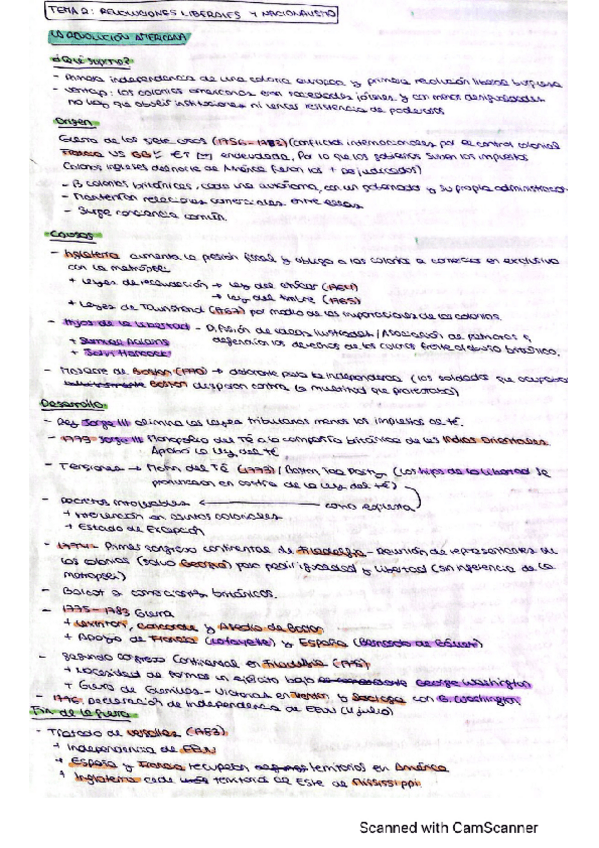 TEMA 2: REVOLUCIONES LIBERALES Y NACIONALISMO
LA REVOLUCIÓN AMERICANA
¿Qué supuso?
- Primera independencia de una colonia europea y primera revolución liberal burguesa
- Ventaja: las colonias americanas eran sociedades jóvenes y con menos desigualdades
no hay que abolir instituciones ni vencer resistencia de poderosos
Origen
Guerra de los siete años (1756-1763) (conflictos internacionales por el control colonial
Francia VS GB endeudada. Por lo que los gobiernos suben los impuestos
Colonos ingleses del norte de América fueron los + perjudicados)
- 13 colonias británicas, cada una autónoma, con un gobernador y su propia administración
- Mantenían relaciones comerciales entre ellas
- Surge conciencia común
Causas
- Inglaterra aumenta la presión fiscal y obliga a las colonias a comerciar en exclusiva
con la metrópoli
+ Leyes de recaudación → Ley del azúcar (1764)
→ Ley del timbre (1765)
+ Leyes de Townshend (1767) por medio de las importaciones de las colonias.
- Hijos de la libertad - Difusión de ideas ilustradas / Asociación de patriotas q
+ Samuel Adams defendían los derechos de los colonos frente al abuso británico.
+ John Hancock
- Masacre de Boston (1770) → detonante para la independencia (los soldados que ocupaban
Boston disparan contra la multitud que protestaba)
Desarrollo
- Rey Jorge III elimina las leyes tributarias menos los impuestos al té.
- 1773 Jorge III Monopolio del Té a la compañía británica de las Indias Orientales
Aprobó la Ley del té
- Tensiones → Motín del Té (1773) / Boston Tea Party (Los hijos de la libertad se
pronuncian en contra de la ley del té)
- Decretos intolerables ← como respuesta
+ Intervención en asuntos coloniales
+ Estado de Excepción
- 1774 - Primer congreso continental de Filadelfia - Reunión de representantes de
las colonias (salvo Georgia) para pedir igualdad y libertad (sin inferencia de la
metrópoli)
- Boicot a comerciantes británicos.
- 1775-1783 Guerra
+ Lexington, Concorde y Asedio de Boston
+ Apoyo de Francia (Lafayette) y España (Bernardo de Gálvez)
- Segundo congreso Continental en Filadelfia (1775)
+ Necesidad de formar un ejército bajo George Washington
+ Guerra de Guerrillas - Victorias en y Saratoga con G. Washington
- 1776. Declaración de Independencia de EEUU (4 julio)
Fin de la guerra
- Tratado de Versalles (1783)
+ Independencia de EEUU
+ España y Francia recuperan territorios en América
+ Inglaterra cede territorio al Este de Mississippi
Scanned with CamScanner